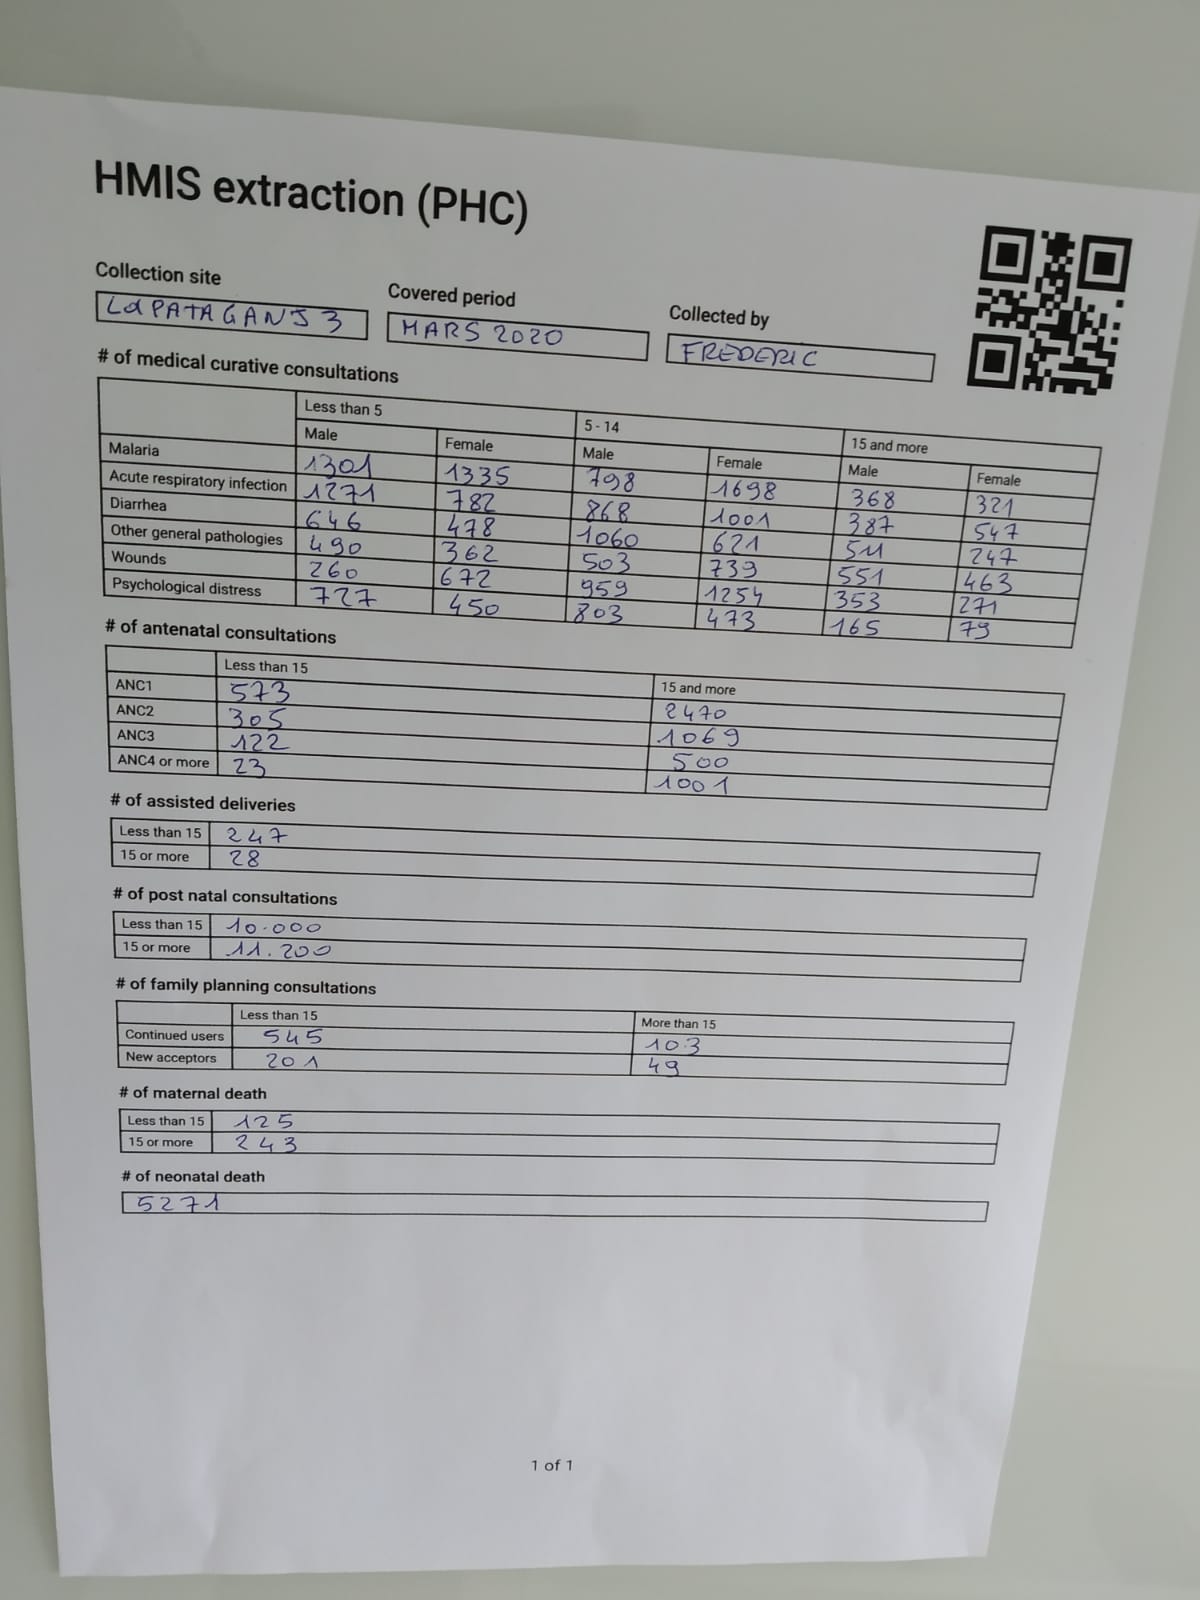 HMIS extraction (PHC)
Collection site Covered period Collected by
LAPATAGANJ 3 MARS 2020 FREDERIC
# of medical curative consultations
Less than 5 5 - 14 15 and more
Male Female Male Female Male Female
Malaria 1301 1335 798 1698 368 321
Acute respiratory infection 1271 782 868 1001 387 547
Diarrhea 646 478 1060 621 511 247
Other general pathologies 490 362 503 739 551 463
Wounds 260 672 959 1254 353 271
Psychological distress 727 450 803 473 165 79
# of antenatal consultations
Less than 15 15 and more
ANC1 573 2470
ANC2 305 1069
ANC3 122 500
ANC4 or more 23 1001
# of assisted deliveries
Less than 15 247
15 or more 28
# of post natal consultations
Less than 15 10.000
15 or more 11.200
# of family planning consultations
Less than 15 More than 15
Continued users 545 103
New acceptors 201 49
# of maternal death
Less than 15 125
15 or more 243
# of neonatal death
5271
1 of 1